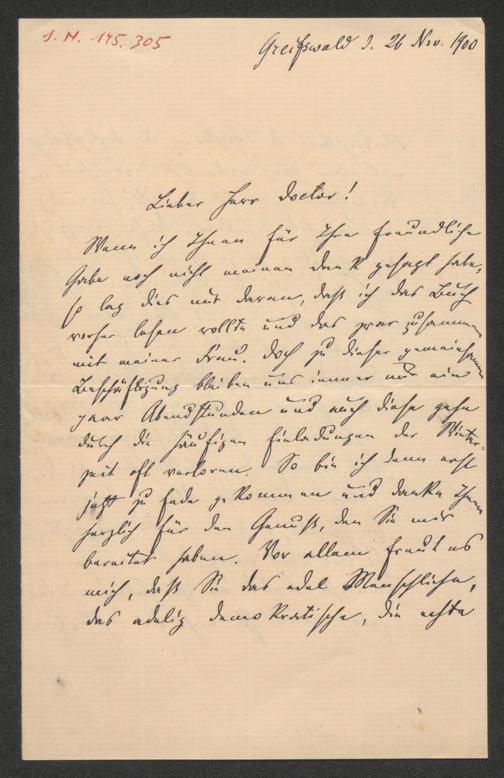 J. N. 145.305
Greifswald d. 26 Nov. 1900
Lieber Herr Doctor!
Wenn ich Ihnen für Ihre freundliche
Gabe noch nicht meinen Dank gesagt habe,
so lag dies nur daran, daß ich das Buch
vorher lesen wollte und das zwar zusammen
mit meiner Frau. Doch zu dieser gemeinsamen
Beschäftigung bleiben uns immer nur ein
paar Abendstunden und auch diese gehn
durch die häufigen Einladungen der Winter-
zeit oft verloren. So bin ich denn erst
jetzt zu Ende gekommen und danke Ihnen
herzlich für den Genuß, den Sie mir
bereitet haben. Vor allem freut es
mich, daß Sie das edel Menschliche,
das adelig demokratische, die echte